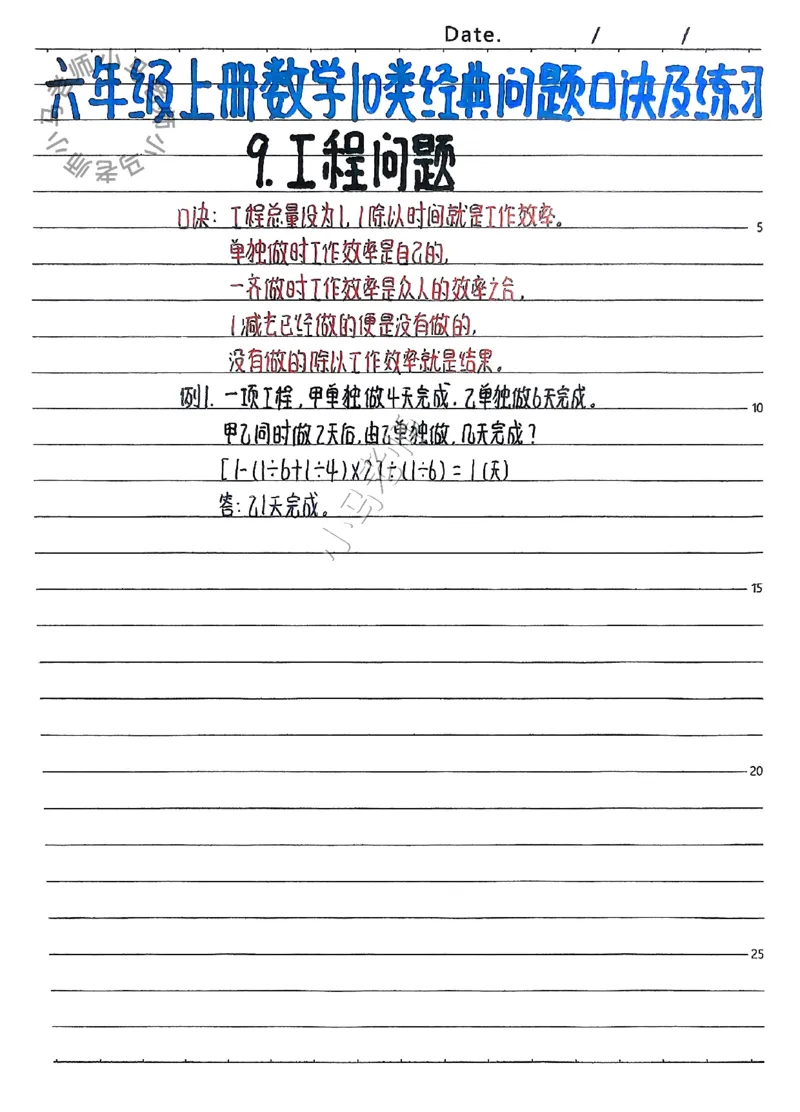 Date. / /
六年级上册数学10类经典问题口诀及练习
9.工程问题
口诀：工程总量设为1，1除以时间就是工作效率。
5
单独做时工作效率是自己的，
一齐做时工作效率是众人的效率之合，
1减去已经做的便是没有做的，
没有做的除以工作效率就是结果。
例1.一项工程，甲单独做4天完成．乙单独做6天完成。
10
甲乙同时做2天后，由乙单独做，几天完成？
[1-(1÷6+1÷4)×2]÷(1÷6)=1(天)
答：乙1天完成。
15
20
25
小马老师
小马老师
小马老师